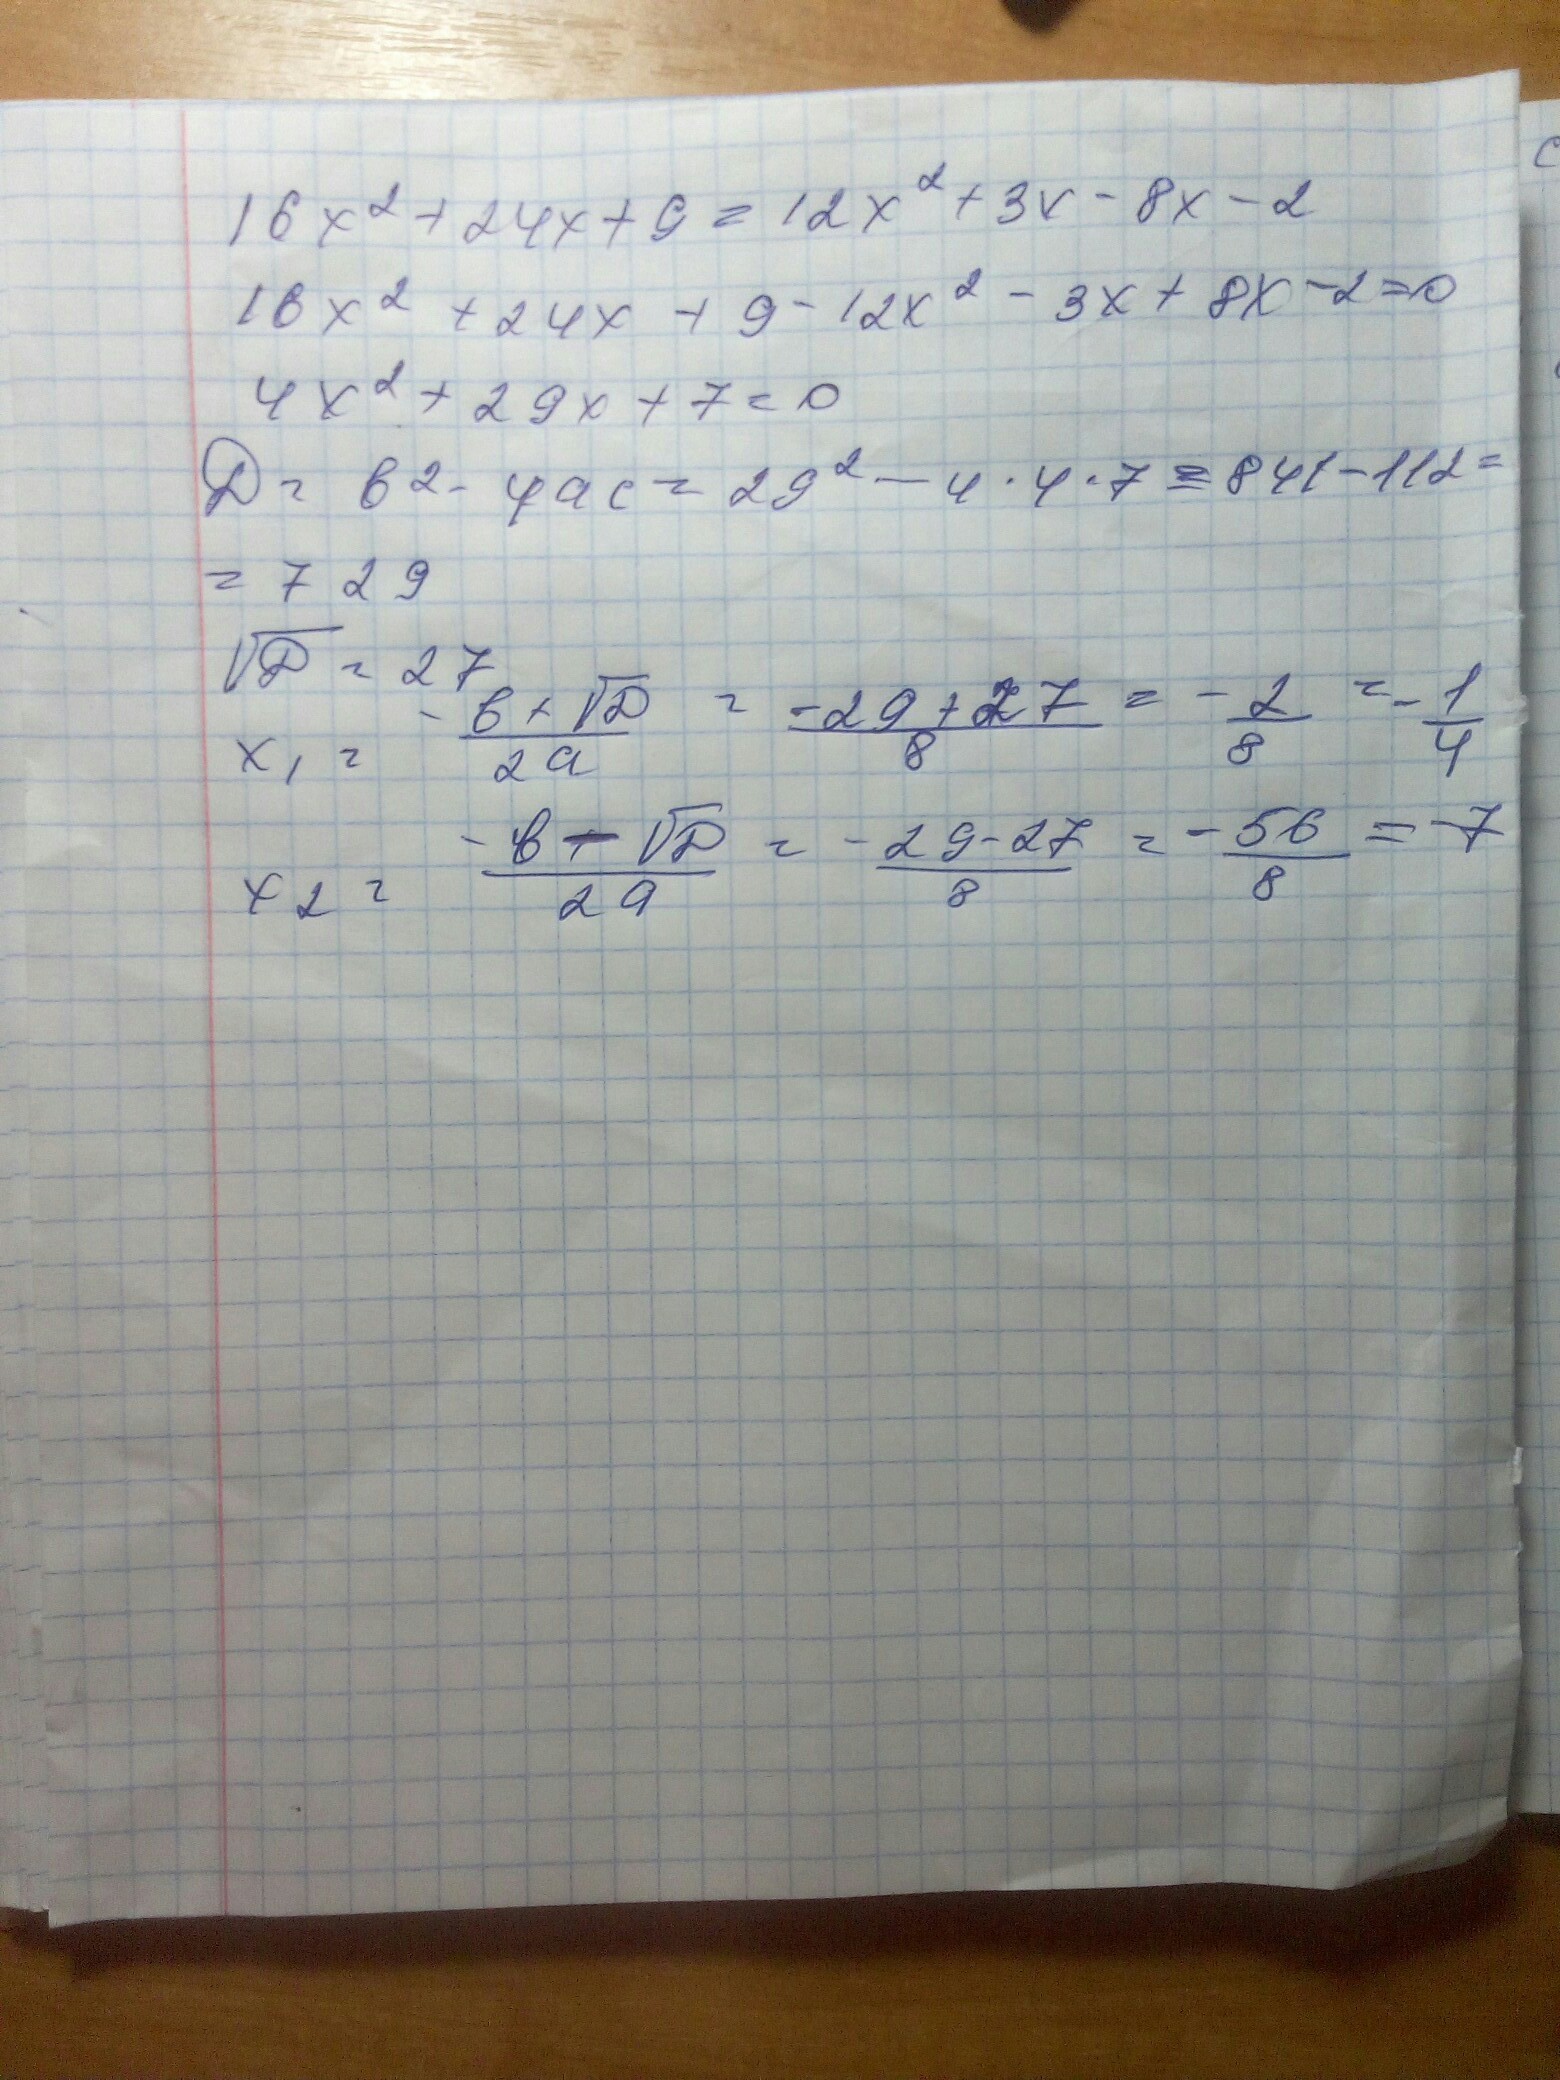 16x² + 24x + 9 = 12x² + 3x - 8x - 2
16x² + 24x + 9 - 12x² - 3x + 8x - 2 = 0
4x² + 29x + 7 = 0
D = b² - 4ac = 29² - 4 · 4 · 7 = 841 - 112 =
= 729
√D = 27
x₁ = (-b + √D)/2a = (-29 + 27)/8 = -2/8 = -1/4
x₂ = (-b - √D)/2a = (-29 - 27)/8 = -56/8 = -7